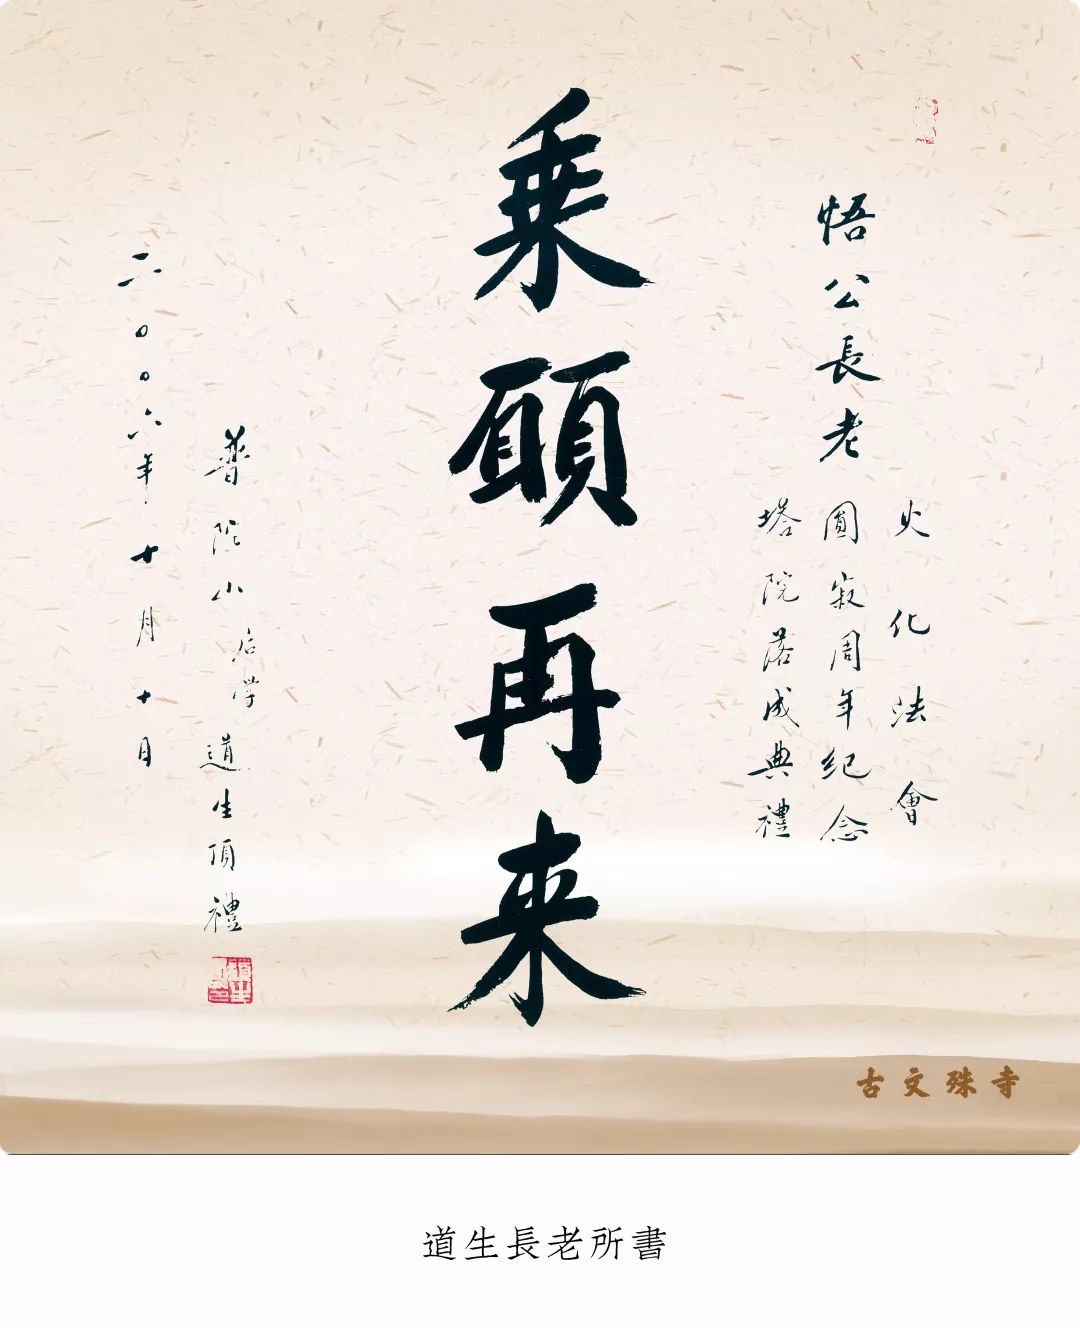 悟公長老
火化法會
圓寂周年纪念
塔院落成典禮
乗願再来
普陀山后学道生頂禮
二〇〇六年十月十日
古文殊寺
道生長老所書